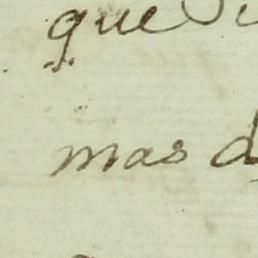 que
mas d